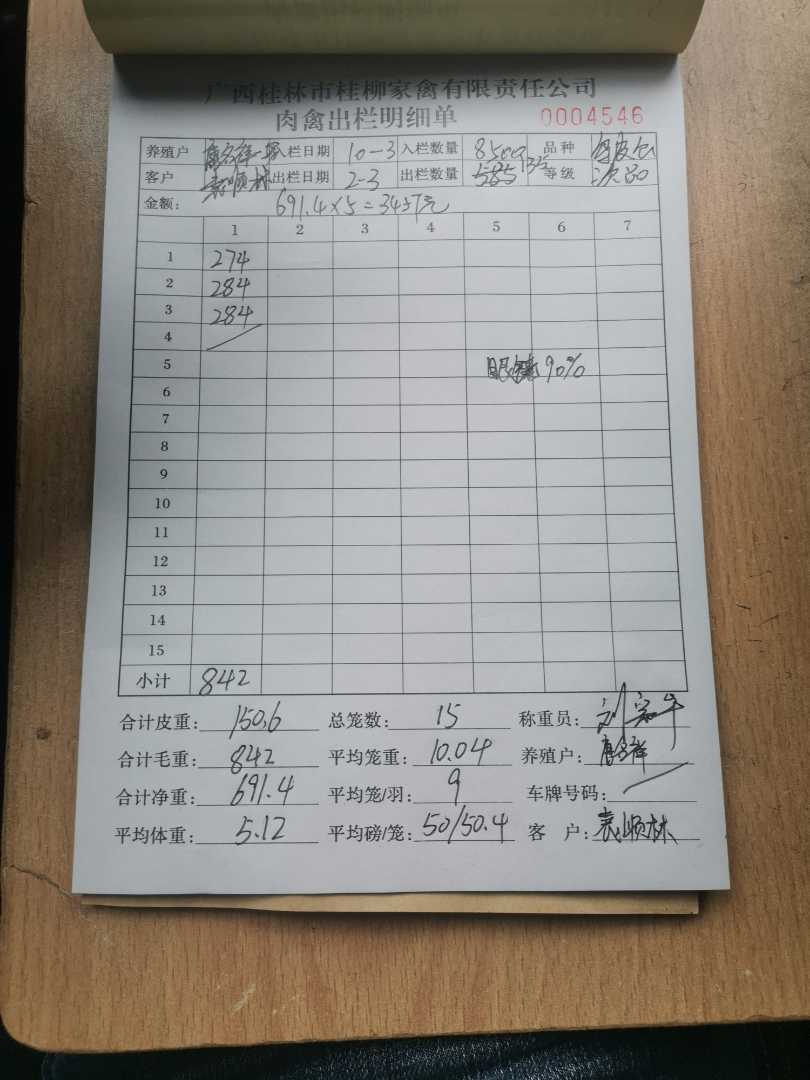 广西桂林市桂柳家禽有限责任公司
肉禽出栏明细单 0004546
养殖户 入栏日期 10-3 入栏数量 8500 品种
客户 袁顺林 出栏日期 2-3 出栏数量 585 135 等级 次品
金额: 691.4×5=3457元
1 2 3 4 5 6 7
1 274
2 284
3 284
4
5 90%
6
7
8
9
10
11
12
13
14
15
小计 842
合计皮重: 150.6 总笼数: 15 称重员:
合计毛重: 842 平均笼重: 10.04 养殖户:
合计净重: 691.4 平均笼/羽: 9 车牌号码:
平均体重: 5.12 平均磅/笼: 50/50.4 客 户: 袁顺林